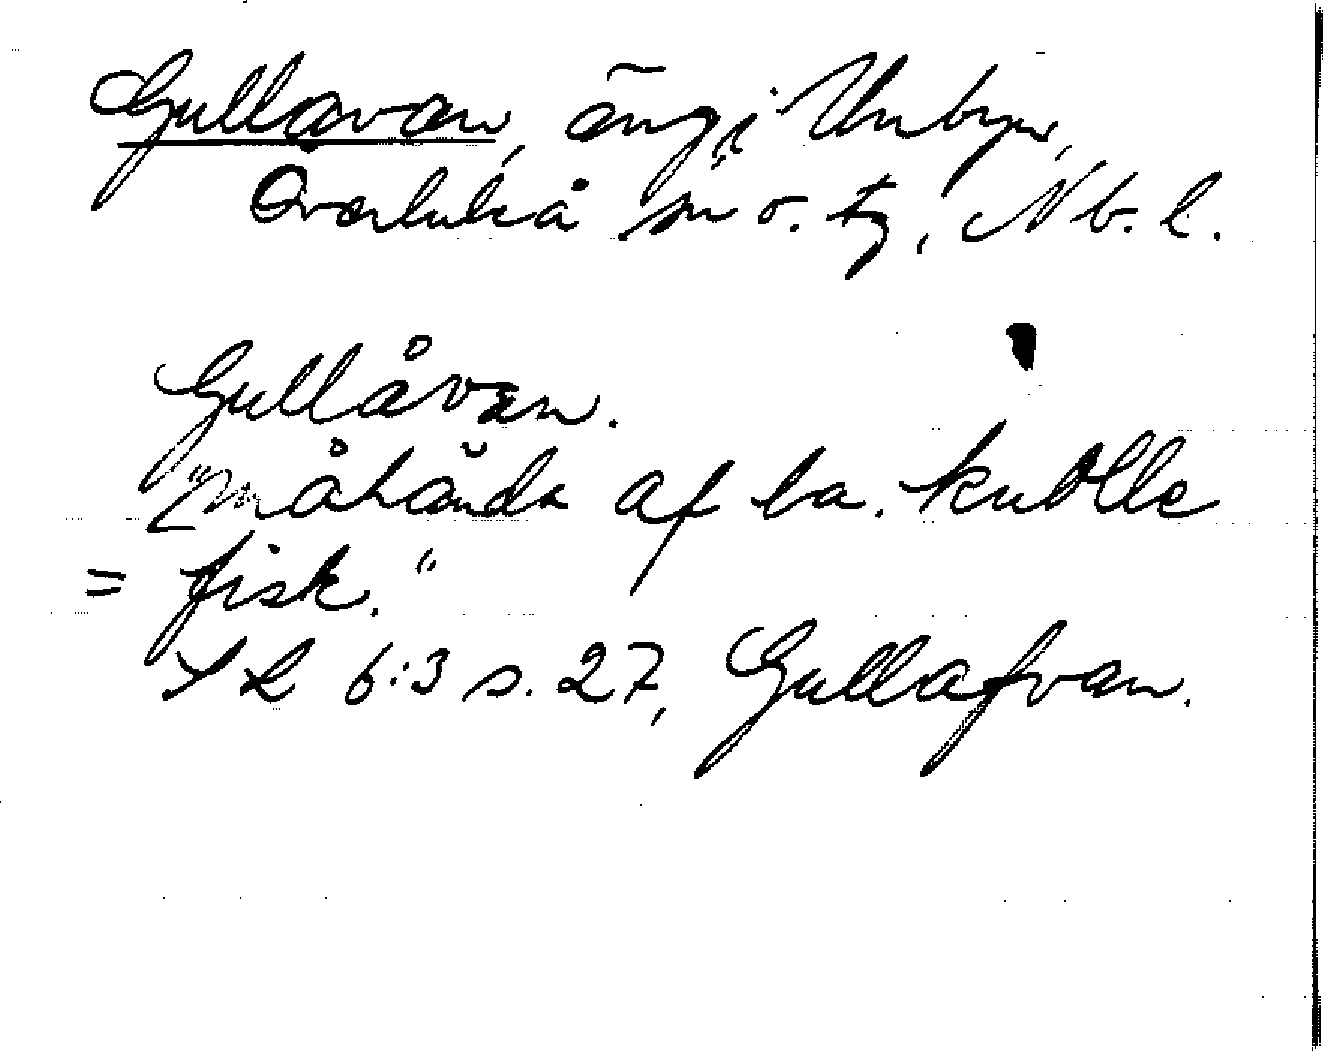 Gullavan, äng i Unbyn,
Överluleå sn o. tg, Nb. l.
Gullåvan.
"Måhända af la. kuolle
= fisk."
SL 6:3 s. 27, Gullafvan.